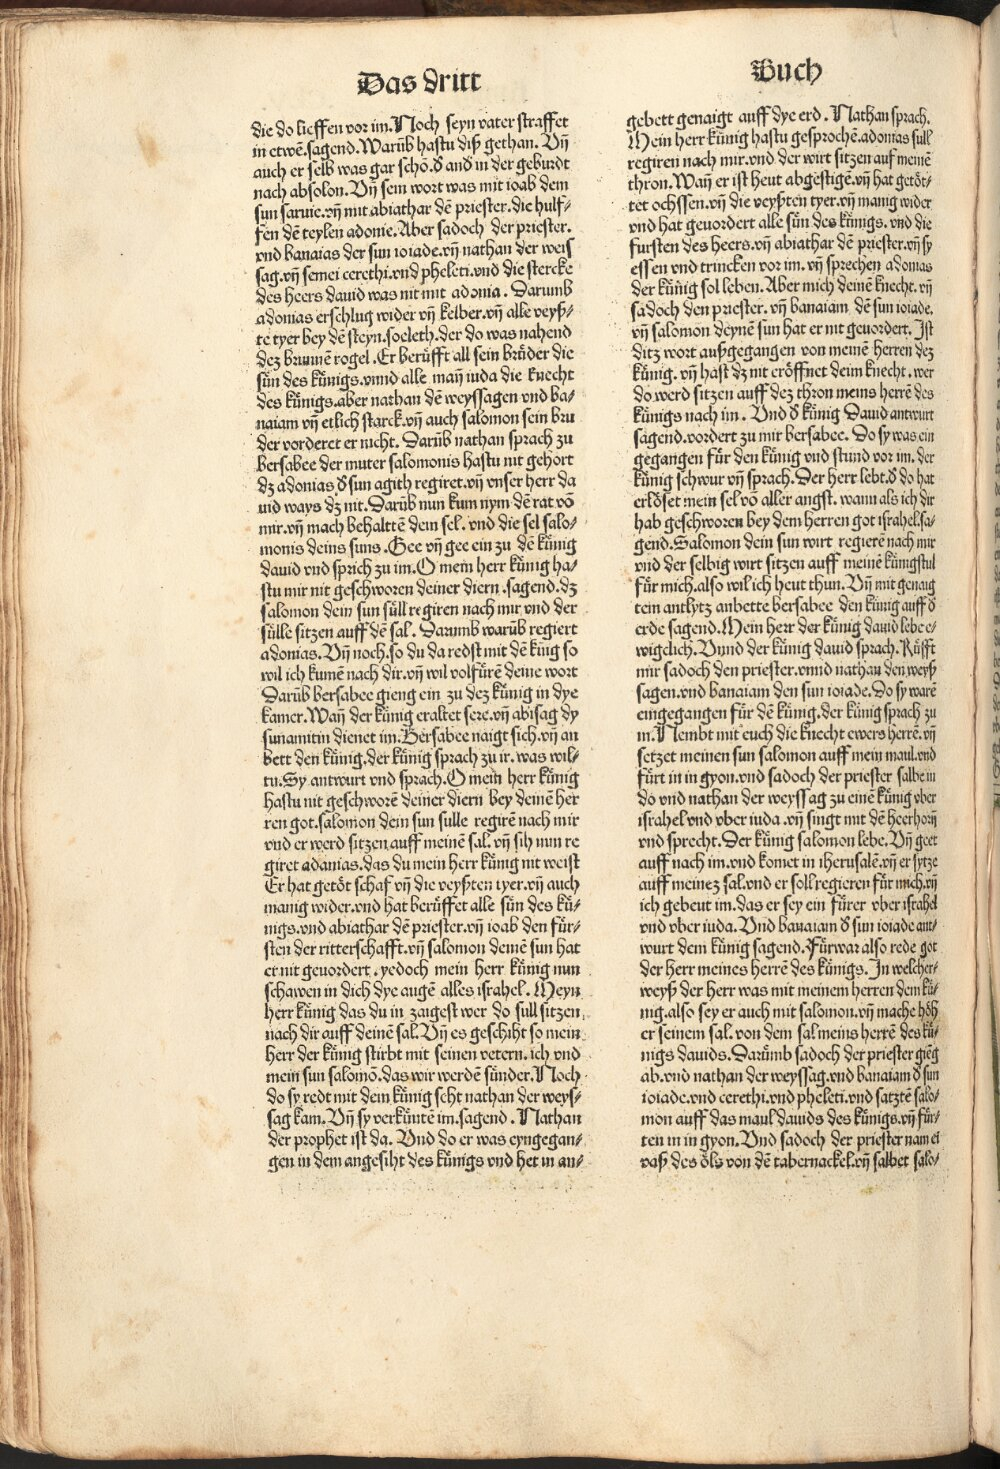 Das dritt
Buch
die do lieffen vor im. Noch seyn vater straffet
in etwē. sagend. Warūb hastu diß gethan. Vñ
auch er selb was gar schō. d̄ and̄ in der geburdt
nach absolon. Vñ sein wort was mit ioab dem
sun saruie. vñ mit abiathar dē priester. die hulf⸗
fen dē teylen adonie. Aber sadoch der priester.
vnd banaias der sun ioiade. vñ nathan der weis
sag. vñ semei cerethi. vnd pheleti. vnd die stercke
des heers dauid was nit mit adonia. Darumb
adonias erschlug wider vñ kelber. vñ alle veyß⸗
te tyer bey dē steyn. soeleth. der do was nahend
dez brunnē rogel. Er berüfft all sein brüder die
sün des künigs. vnnd alle mañ iuda die knecht
des künigs. aber nathan dē weyssagen vnd ba⸗
naiam vñ etlich starck. vñ auch salomon sein bru
der vorderet er nicht. Darūb nathan sprach zu
bersabee der muter salomonis hastu nit gehort
dz adonias d̄ sun agith regiret. vñ vnser herr da
uid ways dz nit. Darūb nun kum nym dē rat vō
mir. vñ mach behalttē dein sel. vnd die sel salo⸗
monis deins suns. Gee vñ gee ein zu dē künig
dauid vnd sprich zu im. O mein herr künig ha⸗
stu mir nit geschworen deiner diern. sagend. dz
salomon dein sun süll regiren nach mir vnd der
sülle sitzen auff dē sal. Darumb warūb regiert
adonias. Vñ noch. so du da redst mit dē küig so
wil ich kumē nach dir. vñ wil volfürē deine wort
Darūb bersabee gieng ein zu dez künig in dye
kamer. Wañ der künig eraltet sere. vñ abisag dy
sunamitin dienet im. Bersabee naigt sich. vñ an
bett den künig. der künig sprach zu ir. was wil⸗
tu. Sy antwurt vnd sprach. O mein herr künig
hastu nit geschworē deiner diern bey deinē her
ren got. salomon dein sun sulle regirē nach mir
vnd er werd sitzen auff meinē sal. vñ sih nun re
giret adanias. das du mein herr künig nit weist
Er hat getöt schaf vñ die veyßten tyer. vñ auch
manig wider. vnd hat berüffet alle sün des kü⸗
nigs. vnd abiathar dē priester. vñ ioab den für⸗
sten der ritterschafft. vñ salomon deinē sun hat
er nit geuordert. yedoch mein herr künig nun
schawen in dich dye augē alles israhel. Meyn
herr künig das du in zaigest wer do sull sitzen
nach dir auff deinē sal. Vñ es geschiht so mein
herr der künig stirbt mit seinen vetern. ich vnd
mein sun salomō. das wir werdē sünder. Noch
do sy redt mit dem künig seht nathan der weys⸗
sag kam. Vñ sy verkūntē im. sagend. Nathan
der prophet ist da. Vnd do er was eyngegan⸗
gen in dem angesiht des künigs vnd het in an⸗
gebett genaigt auff dye erd. Nathan sprach.
Mein herr künig hastu gesprochē. adonias sull
regiren nach mir. vnd der wirt sitzen auf meinē
thron. Wañ er ist heut abgestigē. vñ hat getöt⸗
tet ochssen. vñ die veyßten tyer. vñ manig wider
vnd hat geuordert alle sün des künigs. vnd die
fursten des heers. vñ abiathar dē priester. vñ sy
essen vnd trincken vor im. vñ sprechen adonias
der künig sol leben. Aber mich deinē knecht. vñ
sadoch den priester. vñ banaiam dē sun ioiade.
vñ salomon deynē sun hat er nit geuordert. Ist
ditz wort außgegangen von meinē herren dez
künig. vñ hast dz nit eröffnet deim knecht. wer
do werd sitzen auff dez thron meins herrē des
künigs nach im. Vnd d̄ künig Dauid antwurt
sagend. vordert zu mir bersabee. Do sy was ein
gegangen für den künig vnd stund vor im. der
künig schwur vñ sprach. Der herr lebt. d̄ do hat
erlöset mein sel vō aller angst. wann als ich dir
hab geschworen bey dem herren got israhel. sa⸗
gend. Salomon dein sun wirt regierē nach mir
vnd der selbig wirt sitzen auff meinē künigstul
für mich. also wil ich heut thun. Vñ mit genaig
tem antlytz anbette bersabee den künig auff d̄
erde sagend. Mein herr der künig dauid lebe e⸗
wigclich. Vnnd der künig dauid sprach. Rüfft
mir sadoch den priester. vnnid nathan den weyß
sagen. vnd banaiam den sun ioiade. Do sy warē
eingegangen für dē künig. der künig sprach zu
in. Nembt mit euch die knecht ewers herrē. vñ
setzet meinen sun salomon auff mein maul. vnd
fürt in in gyon. vnd sadoch der priester salbe in
do vnd nathan der weyssag zu einē künig vber
israhel vnd vber iuda. vñ singt mit dē heerhorñ
vnd sprecht. Der künig salomon lebe. Vñ geet
auff nach im. vnd komet in iherusalē. vñ er sytze
auff meinez sal. vnd er soll regieren für mich. vñ
ich gebeut im. das er sey ein fürer vber israhel
vnd vber iuda. Vnd banaiam d̄ sun ioiade ant⸗
wurt dem künig sagend. Fürwar also rede got
der herr meines herrē des künigs. In welcher⸗
weyß der herr was mit meinem herren dem kü⸗
nig. also sey er auch mit salomon. vñ mache höh
er seinem sal. von dem sal meins herrē des kü⸗
nigs dauids. Darūmb sadoch der priester giēg
ab. vnd nathan der weyssag. vnd banaiam d̄ sun
ioiade. vnd cerethi. vnd pheleti. vnd satztē salo⸗
mon auff das maul dauids des künigs. vñ für⸗
ten in in gyon. Vnd sadoch der priester nam el
vaß des öls von dē tabernackel. vñ salbet salo⸗